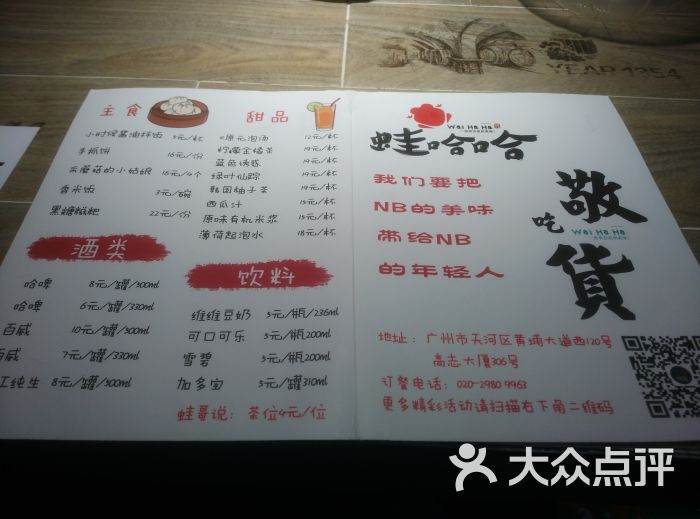 YEAR 1954
主食
小时候酱油拌饭 5元/杯
手抓饼 16元/份
采蘑菇的小姑娘 16元/4个
香米饭 3元/碗
黑糖糍粑 22元/份
甜品
12元/杯
柠檬金橘茶 19元/杯
蓝色诱惑 19元/杯
绿叶仙踪 19元/杯
韩国柚子茶 19元/杯
西瓜汁 15元/杯
原味有机米浆 15元/杯
薄荷起泡水 18元/杯
酒类
哈啤 8元/罐/500ml
哈啤 6元/罐/330ml
百威 10元/罐/500ml
百威 7元/罐/330ml
江纯生 8元/罐/500ml
饮料
维维豆奶 5元/瓶/236ml
可口可乐 5元/瓶200ml
雪碧 5元/瓶200ml
加多宝 5元/罐310ml
蛙哥说: 茶位4元/位
Wai Ha Ha
蛙哈哈
我们要把
NB的美味
带给NB
的年轻人
敬
吃
Wai Ha Ha
货
地址: 广州市天河区黄埔大道西120号
高志大厦306号
订餐电话: 020-2980 9963
更多精彩活动请扫描右下角二维码
大众点评